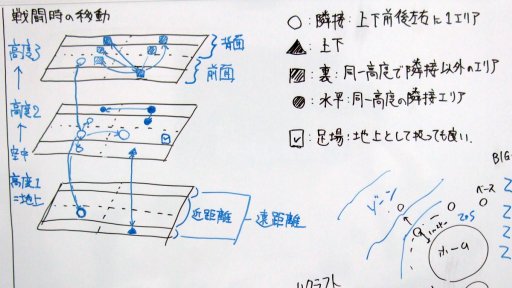 戦闘時の移動
高度3
高度2
空中
高度1
=地上
背面
前面
近距離
遠距離
○:隣接:上下前後左右に1エリア
▲:上下
裏:同一高度で隣接以外のエリア
水平:同一高度の隣接エリア
足場:地上として扱っても良い.
ゾーン
ベース
ホーム
BIG